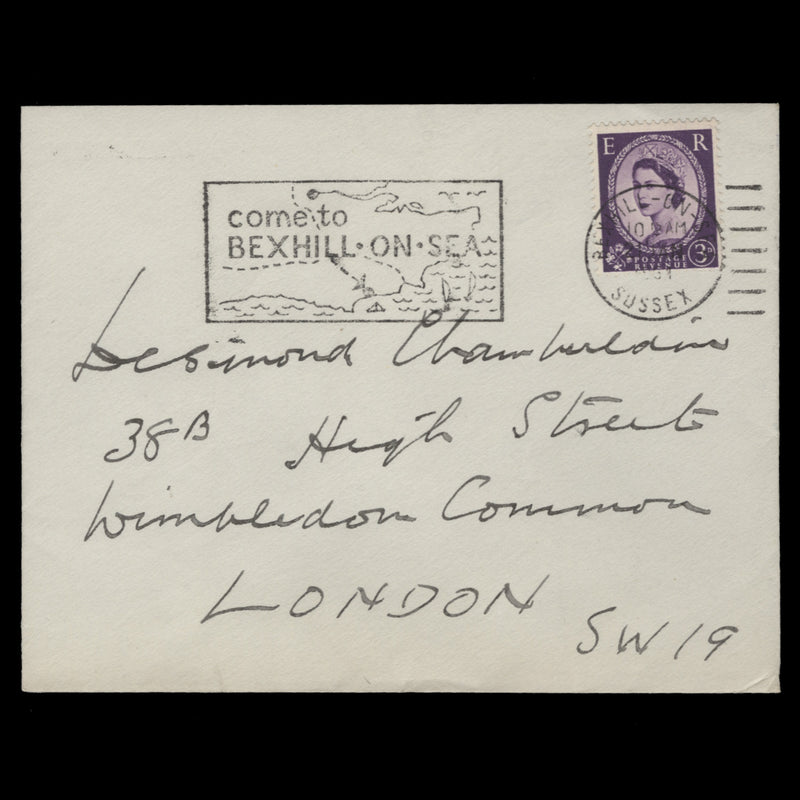 come to
BEXHILL·ON·SEA
E R
3D
POSTAGE
REVENUE
BEXHILL-ON-
10 AM
SUSSEX
Desmond Chamberlain
38B High Street
Wimbledon Common
LONDON
SW19